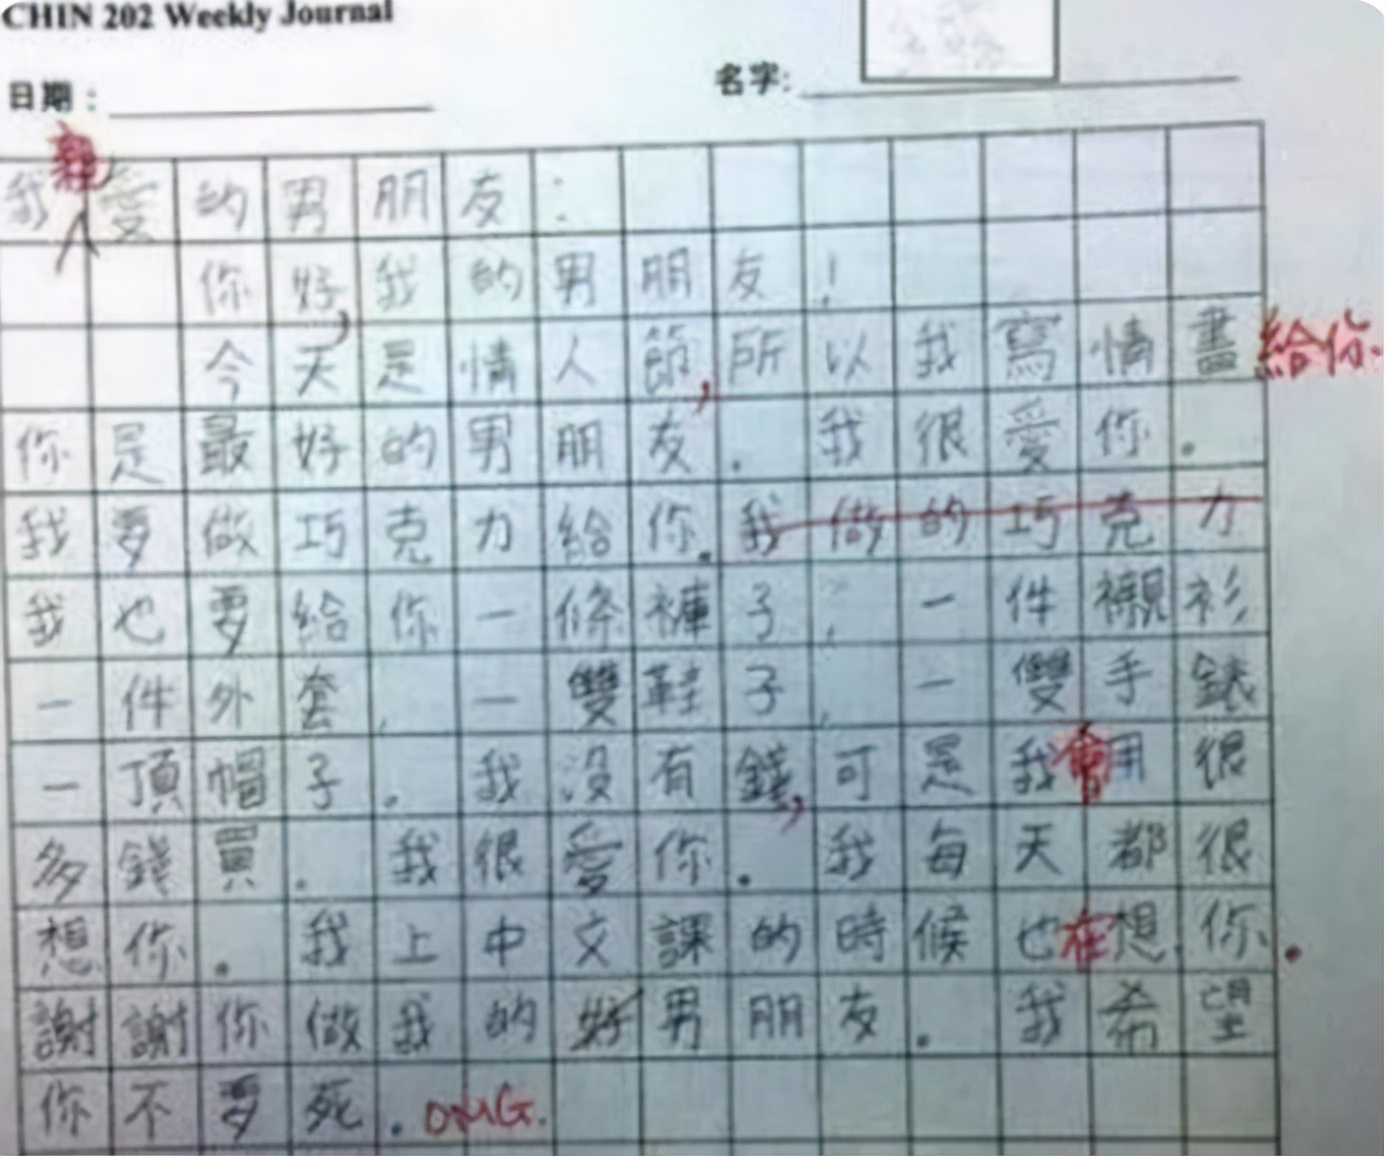 CHIN 202 Weekly Journal
日期： 名字:
我親愛的男朋友：
你好，我的男朋友！
今天是情人節，所以我寫情書給你.
你是最好的男朋友. 我很愛你.
我要做巧克力給你.我做的巧克力
我也要給你一條褲子, 一件襯衫,
一件外套, 一雙鞋子, 一雙手錶
一頂帽子. 我沒有錢,可是我會用很
多錢買. 我很愛你. 我每天都很
想你. 我上中文課的時候也在想你.
謝謝你做我的好男朋友. 我希望
你不要死. OMG.